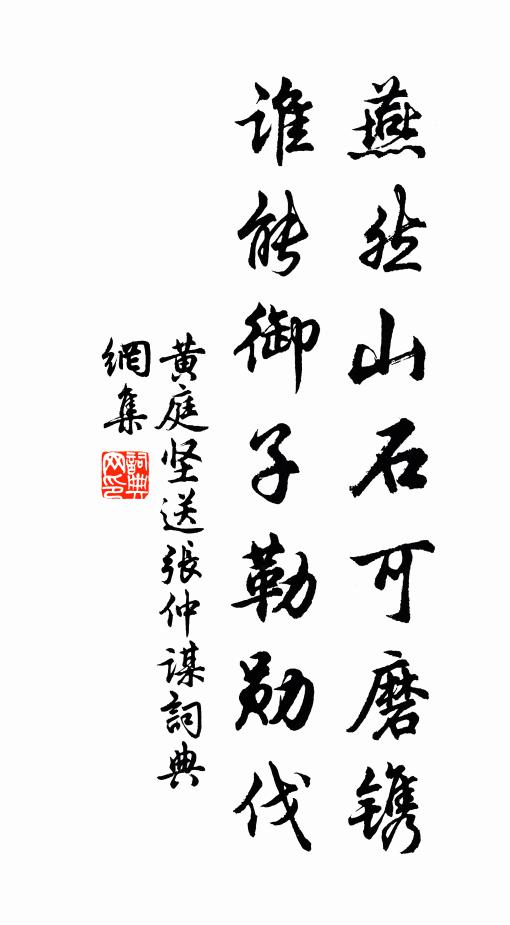 燕然山石可磨镌
谁能御子勒勋伐
黄庭坚送張仲谋詞典
網集
詞典网印